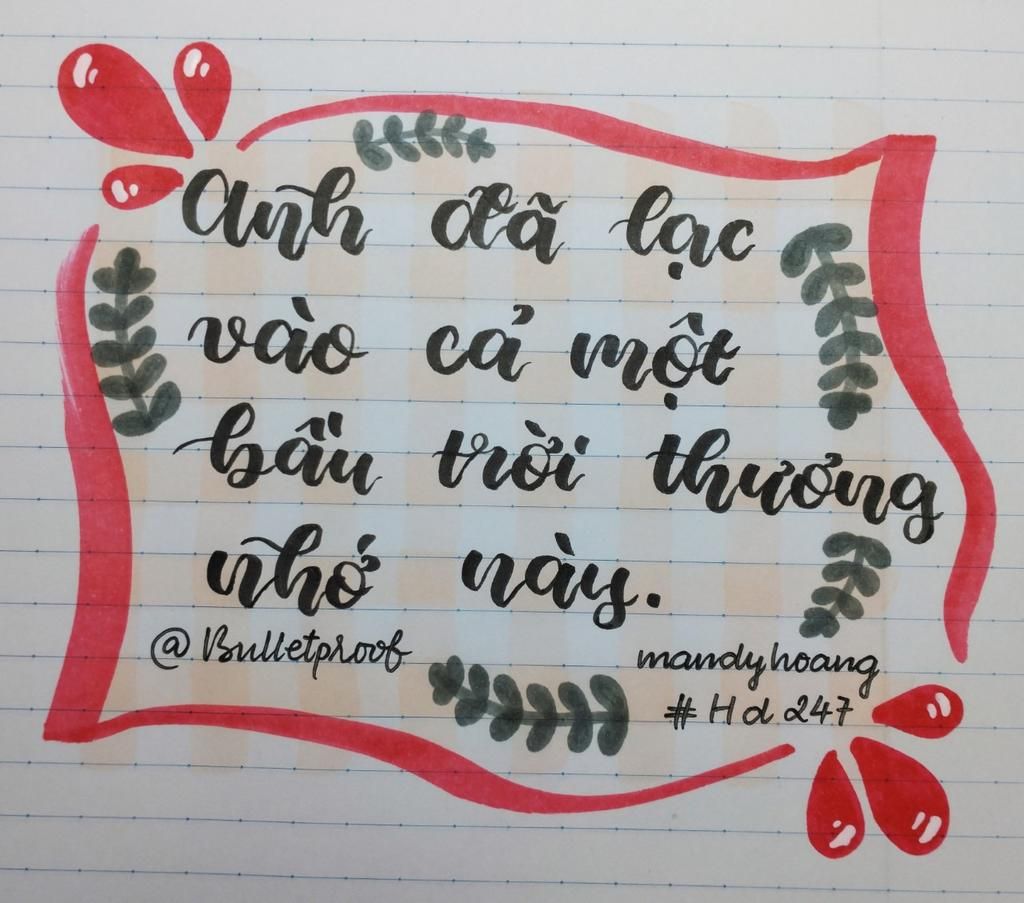 Anh đã lạc
vào cả một
bầu trời thương
nhớ này.
@Bulletproof
mandyhoang
#Hd247